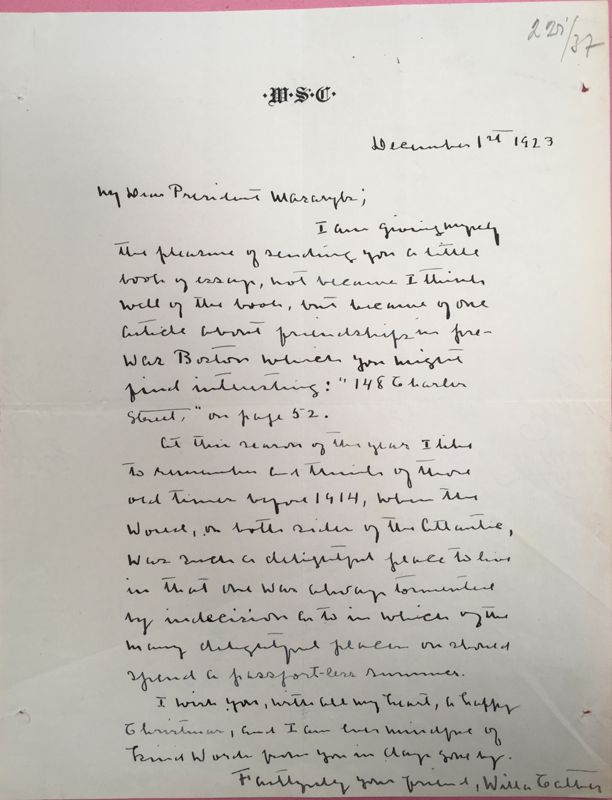 225/37
·W·S·C·
December 1st 1923
My Dear President Masaryk;
I am giving myself
the pleasure of sending you a little
book of essays, not because I think
well of the book, but because of one
article about friendships in pre-
War Boston which you might
find interesting: "148 Charles
Street," on page 52.
At this season of the year I like
to remember and think of those
old times before 1914, when the
World, on both sides of the Atlantic,
was such a delightful place to live
in that one was always tormented
by indecision as to in which of the
many delightful places on should
spend a passport-less summer.
I wish you, with all my heart, a happy
Christmas, and I am ever mindful of
kind words from you in days gone by.
Faithfully your friend, Willa Cather